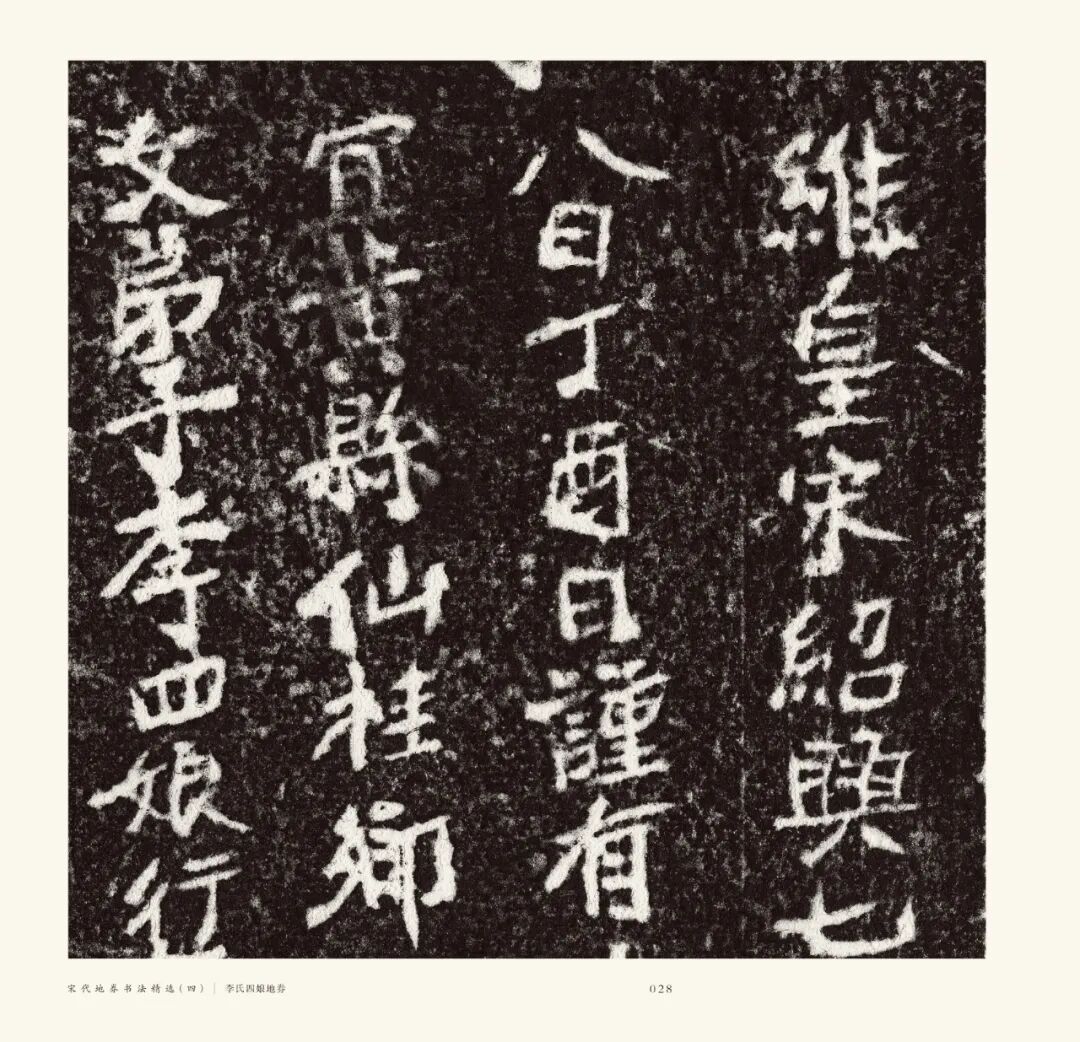 維皇宋紹興七
八日丁酉日謹有
宜黃縣仙桂鄉
女弟子李四娘行
宋代地券书法精选(四) | 李氏四娘地券
028